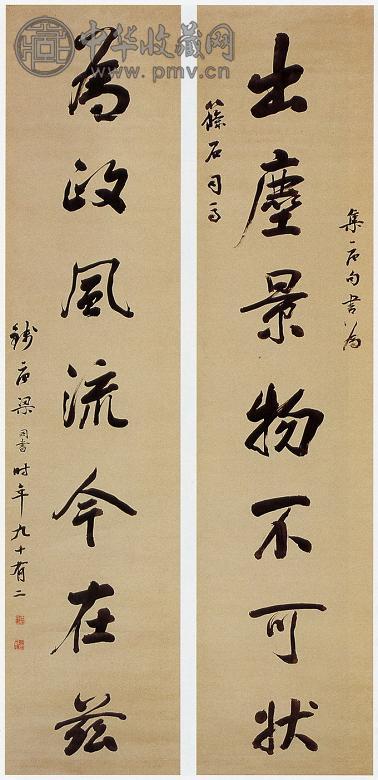 中华收藏网
www.pmv.cn
集唐句書為
出塵景物不可狀
篠石司馬
為政風流今在茲
錢唐梁同書時年九十有二